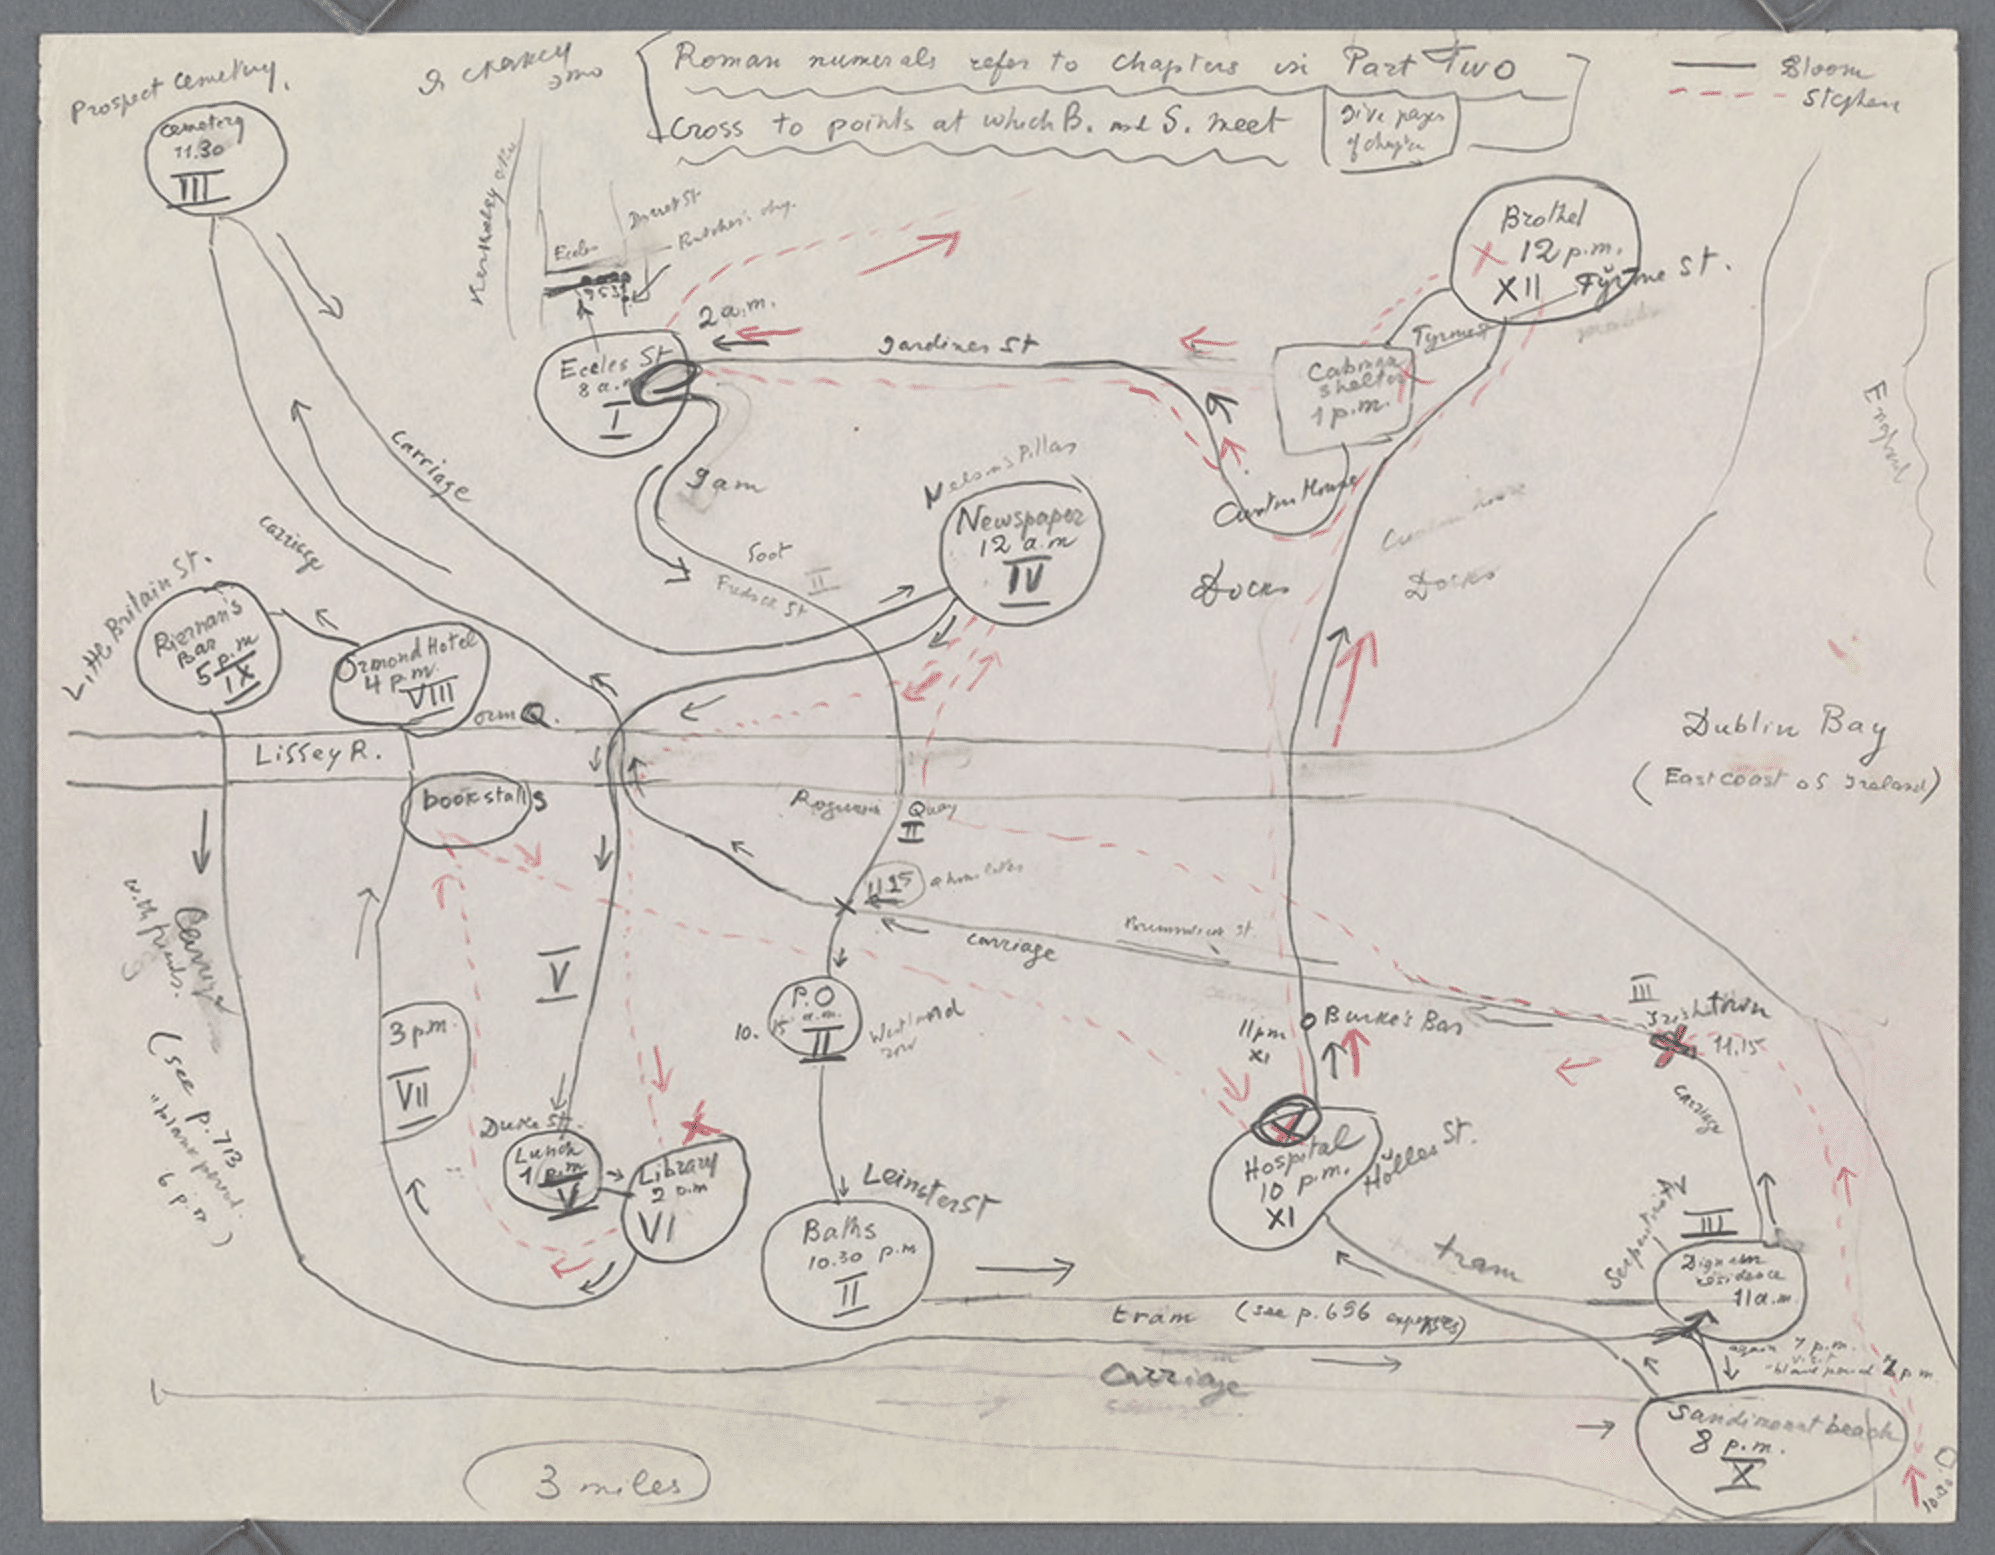 Prospect Cemetery.
Cemetery
11.30
III
Roman numerals refer to chapters in Part Two
Cross to points at which B. and S. meet
Give pages
of chapter
Bloom
Stephen
Dorset St
Eccles
Brothel
12 p.m.
XII
Tyrone St.
2 a.m.
Gardiner St
Eccles St
8 a.m
I
Cabman
shelter
1 p.m.
England
9 am
carriage
carriage
Nelson's Pillar
Newspaper
12 a.m
IV
Custom House
Custom House
foot
II
Docks
Docks
Little Britain St.
Kiernan's
Bar
5 p.m
IX
Ormond Hotel
4 p.m.
VIII
orm Q.
Liffey R.
Dublin Bay
(East coast of Ireland)
bookstalls
Quay
II
11.25
Brunswick St.
carriage
with friends.
V
P.O
10. 15 a.m.
II
Westland
row
11 pm
XI
Burke's Bar
III
Irishtown
11.15
carriage
(see p. 713
"blank period"
6 p.m)
3 p.m.
VII
Duke St.
Lunch
1 p.m
V
Library
2 p.m
VI
Leinster St
Baths
10.30 p.m
II
Hospital
10 p.m.
XI
Holles St.
tram
III
Dignam
residence
11 a.m.
tram (see p. 696 expenses)
again 7 p.m.
visit
Carriage
Sandimount beach
8 p.m.
X
3 miles